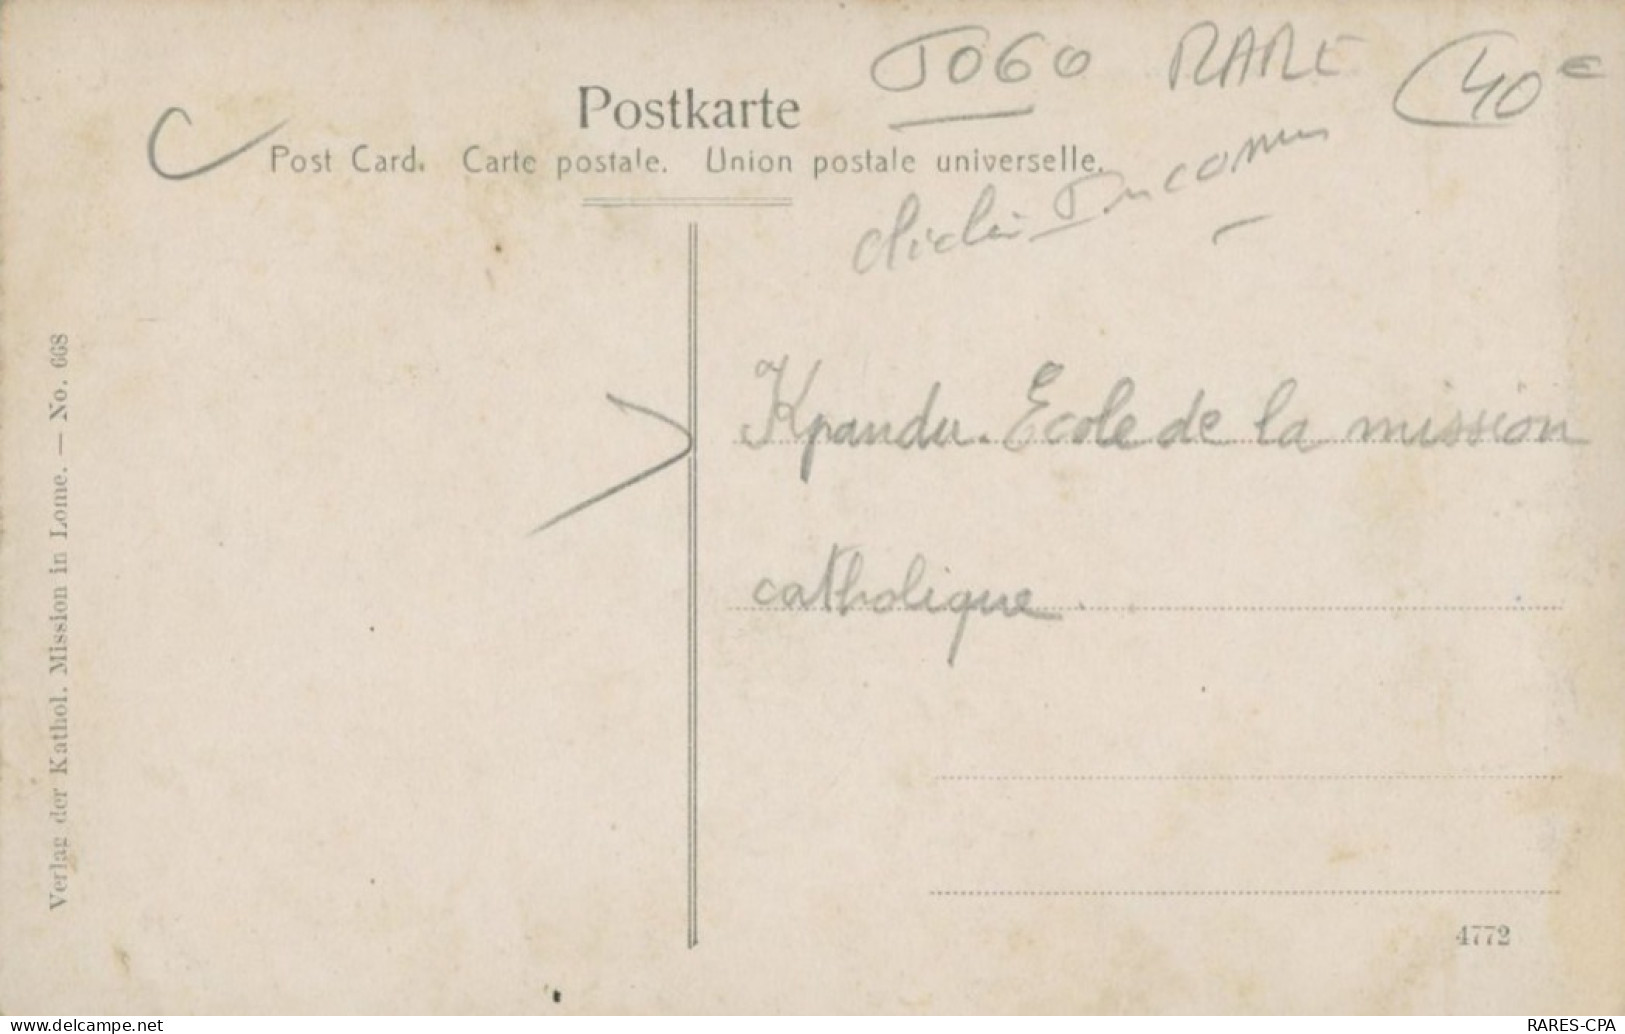 TOGO RARE 40€
Postkarte
Post Card. Carte postale. Union postale universelle.
cliché Inconnu
Kpandu. Ecole de la mission
catholique.
Verlag der Kathol. Mission in Lome. — No. 668
4772
www.delcampe.net
RARES-CPA